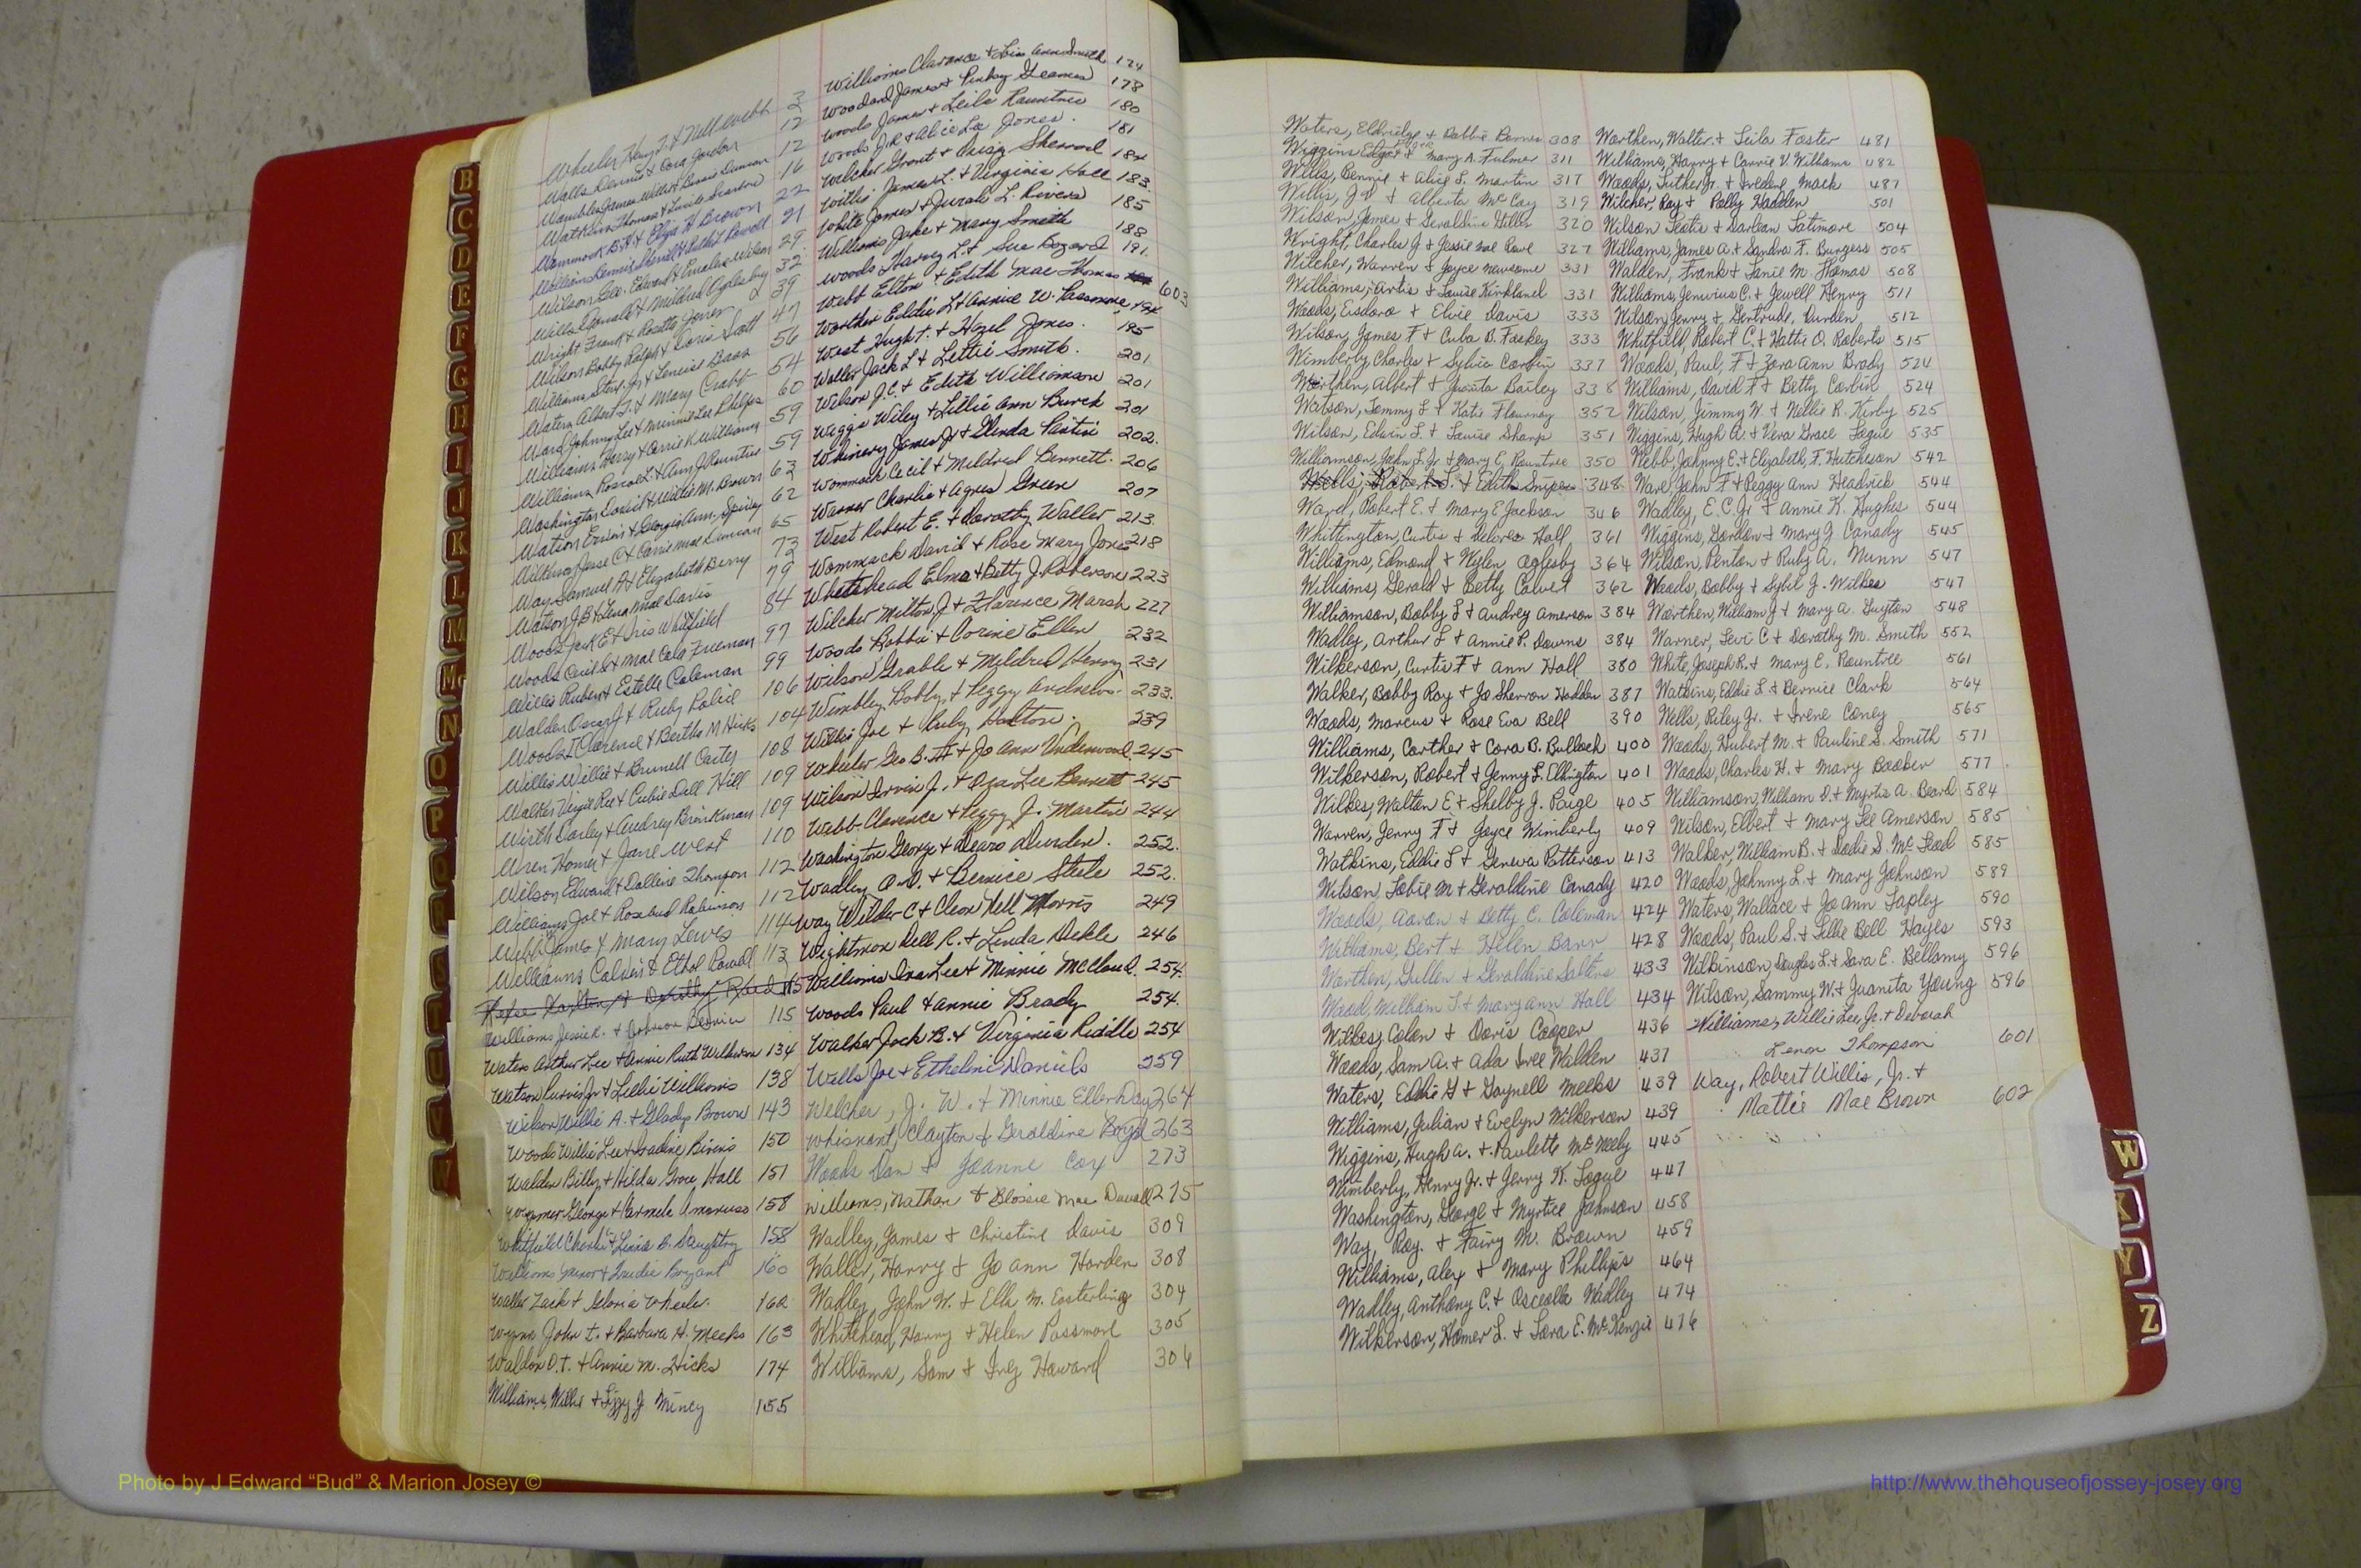 Wheeler Henry T. & Nell Webb 3
Walls Dennis & Cora Jordan 12
Wombles James Willis & Bernis Duncan 12
Watkins Thomas & Lucile 16
Wommack B.H. & Eliza H Brown 22
Williams & Ruth L Powell 21
Wilson Geo. Edward & Emalee Wilson 29
Willis Donald & Mildred Oglesby 32
Wright Frank & Rosetta Jones 39
Wilson Bobby Ralph & Doris Scott 47
Williams Steve Jr & Louise Bass 56
Waters Albert J. & Mary Crabb 54
Ward Johnny Lee & Minnie Lee Phelps 60
Williams Harry & Carrie V. Williams 59
Williams Roscoe L. & Ann J. Rountree 59
Washington David & Willie M. Brown 63
Watson Ervin & Georgia Ann Spivey 62
Wilkerson Jesse C & Carrie Mae Duncan 65
Way Samuel A & Elizabeth Berry 73
Watson J.B & Lena Mae Davis 79
Woods Jack E & Iris Whitfield 84
Woods Cecil & Mae Cola Freeman 97
Willis Rubert Estelle Coleman 99
Walden Oscar J & Ruby 106
Woods I Clarence & Bertha M Hicks 104
Willis Willie & Brunell Carter 108
Walker Virgil Rex & Cubie Dell Hill 109
Wirth Darley & Audrey Brinkman 109
Wren Homer & Jane West 110
Wilson Edward & Dolline Thompson 112
Williams Joe & Rosebud Robinson 112
Webb James & Mary Lewis 114
Williams Calvin & Ethel Powell 113
115
Williams Jessie R. & Johnson Bernice 115
Waters Arthur Lee & Annie Ruth Wilburn 134
Watson Purvis Jr & Lillie Williams 138
Wilson Willie A. & Gladys Brown 143
Woods Willie Lee & Bivins 150
Walden Billy & Hilda Grace Hall 151
George & Carmela 158
Whitfield Charlie & Linnie B. Daughtry 158
Williams Junior & Bryant 160
Waller Zack & Gloria Wheeler. 162
Wynn John T. & Barbara H. Meeks 163
Waldon O.T. & Annie M. Hicks 174
Williams, Willie & Lizzy J. Mincy 155
Williams Clarence & Lois Ann Smith 174
Woodard James & Pinkey Yeomans 178
Woods James & Leila Rountree 180
Woods J.R. & Alice Lee Jones. 181
Welcher Grant & Daisy Sherrod 184
Willis James L. & Virginia Hall 183.
White James & Jurah L. Rivers 185
Williams Jake & Mary Smith 188
Woods Harvey L & Sue Bozard 191.
Webb Elton & Edith Mae Thomas 603
Worthen Eddie L & Annie W. Passmore, 194
West Hugh T. & Hazel Jones. 195
Waller Jack L & Lettie Smith. 201
Wilson J.C. & Edith Williamson 201
Wiggs Wiley & Lillie Ann Burch 201
Whinery James Jr & Glenda 202.
Wommack Cecil & Mildred Bennett. 206
Warner Charlie & Agnes Green 207
West Robert E. & Dorothy Waller 213
Wommack David & Rose Mary Jones 218
Whitehead Elmo & Betty J. Roberson 223
Wilcher Milton J & Florence Marsh 227
Woods Bobbie & Corine Ellen 232
Wilson Grable & Mildred Henry 231
Wimbley Bobby & Peggy Andrews. 233.
Willis Joe & Ruby Dalton. 239
Wheeler Geo B. III & Jo Ann Underwood 245
Wilson Irvin J. & Oza Lee Bennett 245
Webb Clarence & Peggy J. Martin 244
Washington George & Durden. 252.
Wadley O.D. & Bernice Steele 252.
Way Wilder C & Cleon Nell Morris 249
Wightman Dell R. & Linda Dekle 246
Williams Ira Lee & Minnie McCloud 254.
Woods Paul & Annie Brady 254.
Walker Jack B. & Virginia Riddle 254
Wells Joe & Etheline Daniels 259
Welcher, J. W. & Minnie Ellen Day 264
Whisnant, Clayton & Geraldine Boyd 263
Woods Dan & Joanne Cox 273
Williams, Nathan & Blossie Mae Duvall 275
Wadley, James & Christine Davis 309
Waller, Harry & Jo Ann Harden 308
Wadley, John W. & Ella M. Easterling 304
Whitehead, Harry & Helen Passmore 305
Williams, Sam & Inez Howard 306
Waters, Eldridge & Debbie Barnes 308
Wiggins Edgar & Mary A. Fulmer 311
Wells, Bennie & Alice L. Martin 317
Willis, J.D & Alberta McCoy 319
Wilson, James & Geraldine Hiller 320
Wright, Charles J & Jessie Mae Rowe 327
Witcher, Warren & Joyce Newsome 331
Williams, Artis & Louise Kirkland 331
Woods, Eisdoro & Elvie Davis 333
Wilson, James F & Cuba B. Foskey 333
Wimberly, Charles & Sylvia Corbin 337
Worthen, Albert & Juanita Bailey 338
Watson, Tommy L & Katie Flournoy 352
Wilson, Edwin L. & Louise Sharp 351
Williamson, John L. Jr & Mary E. Rountree 350
Wells, Robert L. & Edith Snipes 348
Ward, Robert E. & Mary E Jackson 346
Whittington, Curtis & Delores Hall 361
Williams, Edmond & Oglesby 364
Williams, Gerald & Betty Calvet 362
Williamson, Bobby L & Audrey Amerson 384
Wadley, Arthur L & Annie P. Downs 384
Wilkerson, Curtis F & Ann Hall 380
Walker, Bobby Ray & Jo Sherron Hadden 387
Woods, Marcus & Rose Eva Bell 390
Williams, Carther & Cora B. Bulloch 400
Wilkerson, Robert & Jenny L. Ellington 401
Wilkes, Walton E & Shelby J. Paige 405
Warren, Jerry F & Joyce Wimberly 409
Watkins, Eddie L & Geneva Patterson 413
Wilson, Tobie M & Geraldine Canady 420
Woods, Aaron & Betty C. Coleman 424
Williams, Bert & Helen Barr 428
Worthen, Gullen & Geraldine Salters 433
Wood, William T. & Mary Ann Hall 434
Wilkes, Colon & Doris Cooper 436
Woods, Sam A. & Ada Iree Walden 437
Waters, Eddie G & Gaynell Meeks 439
Williams, Julian & Evelyn Wilkerson 439
Wiggins, Hugh A. & Paulette McNeely 445
Wimberly, Henry Jr. & Jerry K. Logue 447
Washington, George & Myrtice Johnson 458
Way, Roy. & Fairy M. Brown 459
Williams, Alex & Mary Phillips 464
Wadley, Anthony C. & Osceolla Wadley 474
Wilkerson, Homer L. & Sara E. McKenzie 476
Worthen, Walter & Leila Foster 481
Williams, Harry & Carrie V. Williams 482
Woods, Luther Jr. & Iredene Mack 487
Wilcher, Ray & Polly Hadden 501
Wilson Leatis & Darlean Latimore 504
Williams, James A. & Sandra F. Burgess 505
Walden, Frank & Janie M. Thomas 508
Williams, Jenwius C. & Jewell Henry 511
Wilson, Jerry & Gertrude Durden 512
Whitfield, Robert C. & Hattie O. Roberts 515
Woods, Paul, F & Zora Ann Brady 524
Williams, David F & Betty Corbin 524
Wilson, Jimmy W. & Nellie R. Kirby 525
Wiggins, Hugh A. & Vera Grace Logue 535
Webb, Johnny E. & Elizabeth, F. Hutcheson 542
Ware, John F & Peggy Ann Headrick 544
Wadley, E.C. Jr & Annie K. Hughes 544
Wiggins, Gordon & Mary J Canady 545
Wilson, Penton & Ruby A. Nunn 547
Woods, Bobby & Sybil J. Wilkes 547
Worthen, William J & Mary A. Guyton 548
Warner, Levi C & Dorothy M. Smith 552
White, Joseph R. & Mary E. Rountree 561
Watkins, Eddie L & Bernice Clark 564
Wells, Riley Jr. & Irene Coney 565
Woods, Hubert M. & Pauline S. Smith 571
Woods, Charles H. & Mary Booker 577
Williamson, William D. & Myrtis A. Beard 584
Wilson, Elbert & Mary Lee Amerson 585
Walker, William B. & Dodie S. McLeod 585
Woods, Johnny L. & Mary Johnson 589
Waters, Wallace & Jo Ann Tapley 590
Woods, Paul S. & Lillie Bell Hayes 593
Wilkinson, Douglas L. & Sara E. Bellamy 596
Wilson, Sammy W. & Juanita Young 596
Williams, Willie Lee, Jr. & Deborah
Lenor Thompson 601
Way, Robert Willis, Jr. &
Mattie Mae Brown 602
B
C
D
E
F
G
H
I
J
K
L
M
Mc
N
O
P
W
Y
Z
Photo by J Edward “Bud” & Marion Josey ©
http://www.thehouseofjossey-josey.org